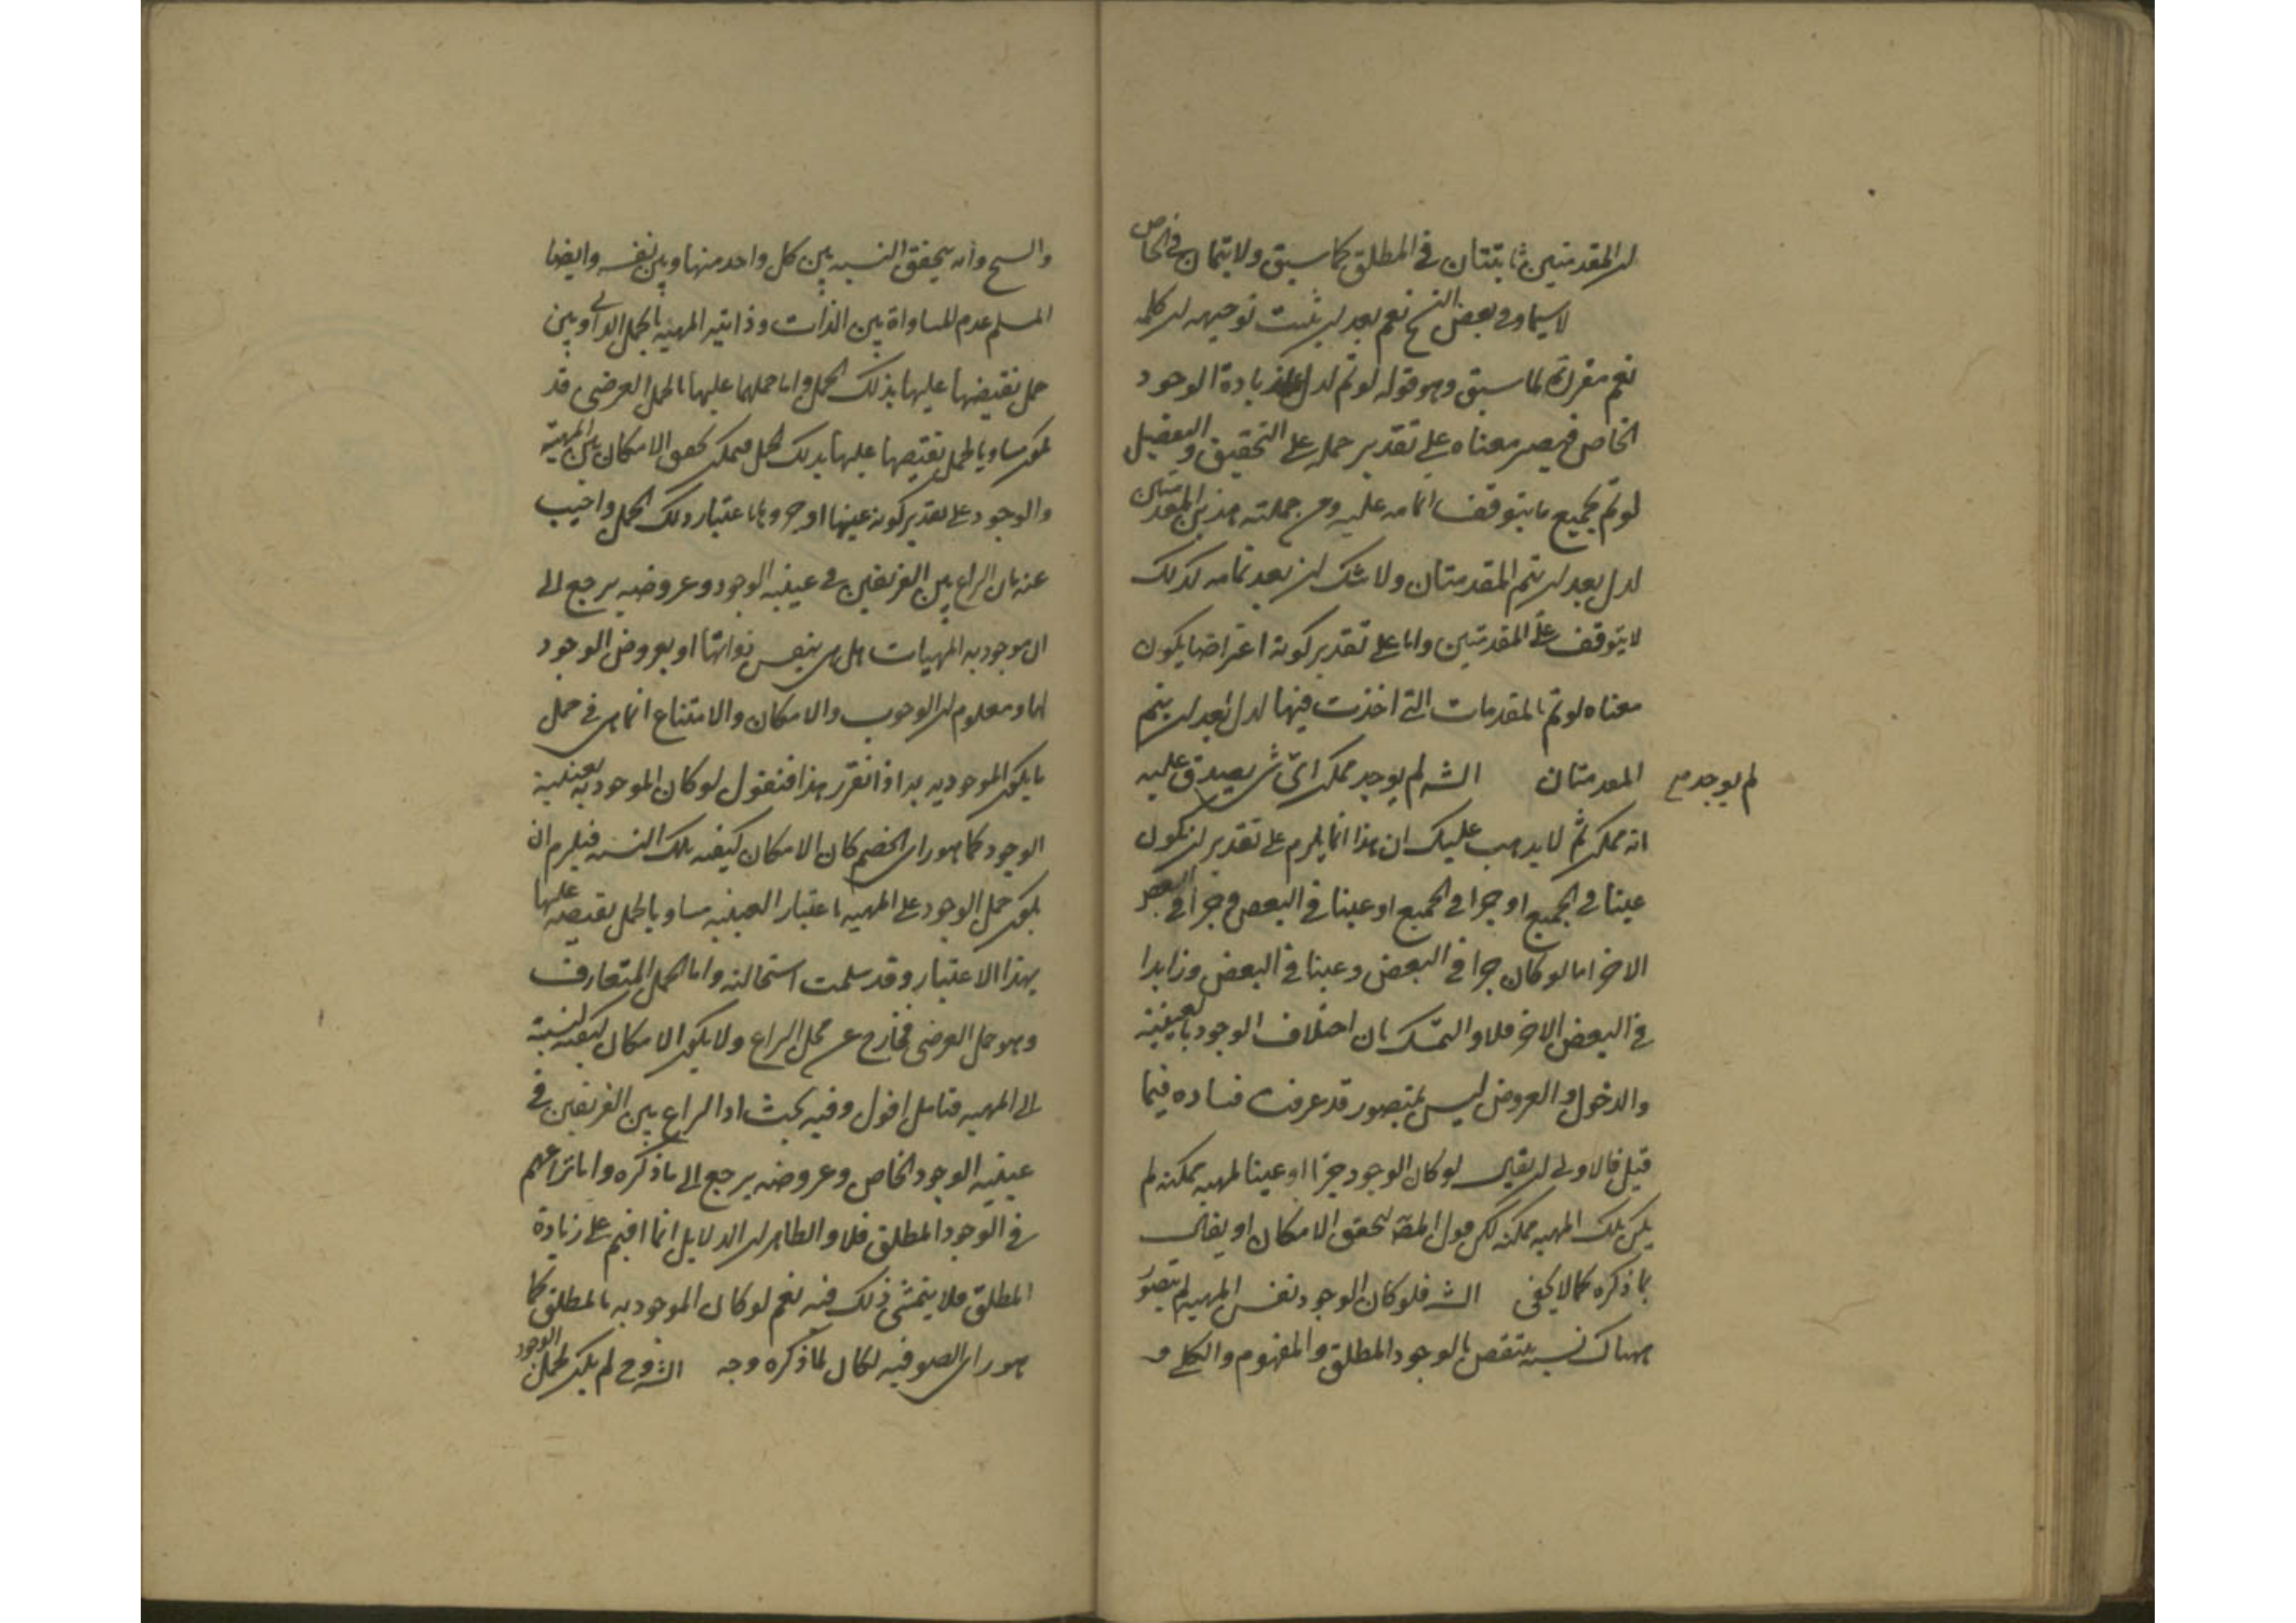 ان المقدمتين ثابتتان في المطلق كما سبق ولا يتمان في الخاص
لا سيما وفي بعض النسخ نعم بعد ان يثبت توجيهه ان كلمة
نعم مقررة لما سبق وهو قوله لو تم لدل على زيادة الوجود
الخاص فيصير معناه على تقدير حمله على التحقيق والتفصيل
لو تم بجميع ما يتوقف اتمامه عليه ومن جملته هذين المقدمتين
لدل بعد ان يتم المقدمتان ولا شك ان بعد تمامه كذلك
لا يتوقف على المقدمتين واما على تقدير كونه اعتراضا يكون
معناه لو تم بالمقدمات التي اخذت فيها لدل بعد ان يتم
المقدمتان الش لم يوجد ممكن اي شي يصدق عليه
لم يوجد مع
انه ممكن ثم لا يذهب عليك ان هذا انما يلزم على تقدير ان يكون
عينا في الجميع او جزا في الجميع او عينا في البعض وجزا في البعض
الاخر اما لو كان جزا في البعض وعينا في البعض وزايدا
في البعض الاخر فلا والتمسك بان اختلاف الوجود بالعينية
والدخول والعروض ليس بمتصور قد عرفت فساده فيما
قبل فالاولى ان يقال لو كان الوجود جزا او عينا لمهية ممكنة لم
يكن تلك المهية ممكنة لكن قول المص لتحقق الامكان او يقال
بما ذكره كما لا يخفى الش فلو كان الوجود نفس المهية لم يتصور
هناك نسبة ينتقض بالوجود المطلق والمفهوم والكلي و
وانه يتحقق النسبة بين كل واحد منها وبين نفسه وايضا
المسلم عدم المساواة بين الذات وذاتية المهية بالحمل الذاتي وبين
حمل نقيضها عليها بذلك الحمل واما حملهما عليها بالحمل العرضي قد
يكون مساويا لحمل نقيضها عليها بذلك الحمل فيمكن تحقق الامكان بين المهية
والوجود على تقدير كونه عينها او جزوها باعتبار ذلك الحمل واجيب
عنه بان النزاع بين الفريقين في عينية الوجود وعروضه يرجع الى
ان موجودية المهيات هل هي بنفس ذواتها او بعروض الوجود
لها ومعلوم ان الوجوب والامكان والامتناع انما هي في حمل
ما يكون الموجودية به اذا تقرر هذا فنقول لو كان الموجودية بعينية
الوجود كما هو راى الخصم كان الامكان كيفية تلك النسبة فيلزم ان
يكون حمل الوجود على المهية باعتبار العينية مساويا لحمل نقيضه عليها
بهذا الاعتبار وقد سلمت استحالته واما الحمل المتعارف
وهو حمل العرضي فخارج عن محل النزاع ولا يكون الامكان كيفية لنسبته
الى المهية فتامل اقول وفيه بحث اذ النزاع بين الفريقين في
عينية الوجود الخاص وعروضه يرجع الى ما ذكره واما نزاعهم
في الوجود المطلق فلا والظاهر ان الدلايل انما اقيم على زيادة
المطلق فلا يتمشى ذلك فيه نعم لو كان الموجودية بالمطلق كما
هو راى الصوفية لكان لما ذكره وجه الش وح لم يكن لحمل الوجود